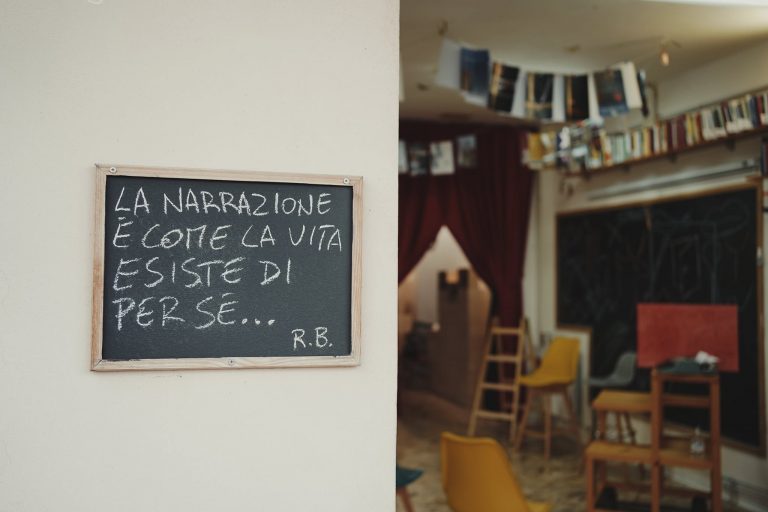 LA NARRAZIONE
È COME LA VITA
ESISTE DI
PER SE...
R.B.